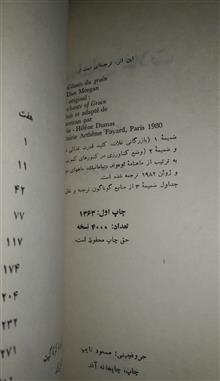 این اثر، ترجمه‌ای است از:
Géants du grain
Dan Morgan
original:
chants of Grain
duit et adapté de
américain par
ie-Hélène Dumas
airie Arthème Fayard, Paris 1980
ضمیمهٔ ۱ (بازرگانی غلات، کلید قدرت غذائی
و ضمیمهٔ ۲ (وضع کشاورزی در کشورهای
به ترتیب از ماهنامهٔ لوموند دیپلماتیک، ماههای
و ژوئن ۱۹۸۲ ترجمه شده است.
جداول ضمیمهٔ ۳ از منابع گوناگون ترجمه و
چاپ اول: ۱۳۶۳
تعداد: ۴۰۰۰ نسخه
حق چاپ محفوظ است.
حروفچینی: مسعود تایپ
چاپ: چاپخانه آفتاب
هفت
۱
۱۱
۴۲
۷۷
۱۱۷
۱۷۴
۲۰۴
۲۳۲
۲۷۱